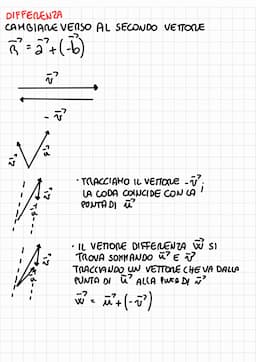 DIFFERENZA
CAMBIARE VERSO AL SECONDO VETTORE
R⃗ = a⃗ + (-b⃗)
v⃗
- v⃗
v⃗
u⃗
· TRACCIAMO IL VETTORE -v⃗ ;
LA CODA COINCIDE CON LA
PUNTA DI u⃗
· IL VETTORE DIFFERENZA w⃗ SI
TROVA SOMMANDO u⃗ E v⃗
TRACCIANDO UN VETTORE CHE VA DALLA
PUNTA DI v⃗ ALLA PUNTA DI u⃗
w⃗ = u⃗ + (-v⃗)